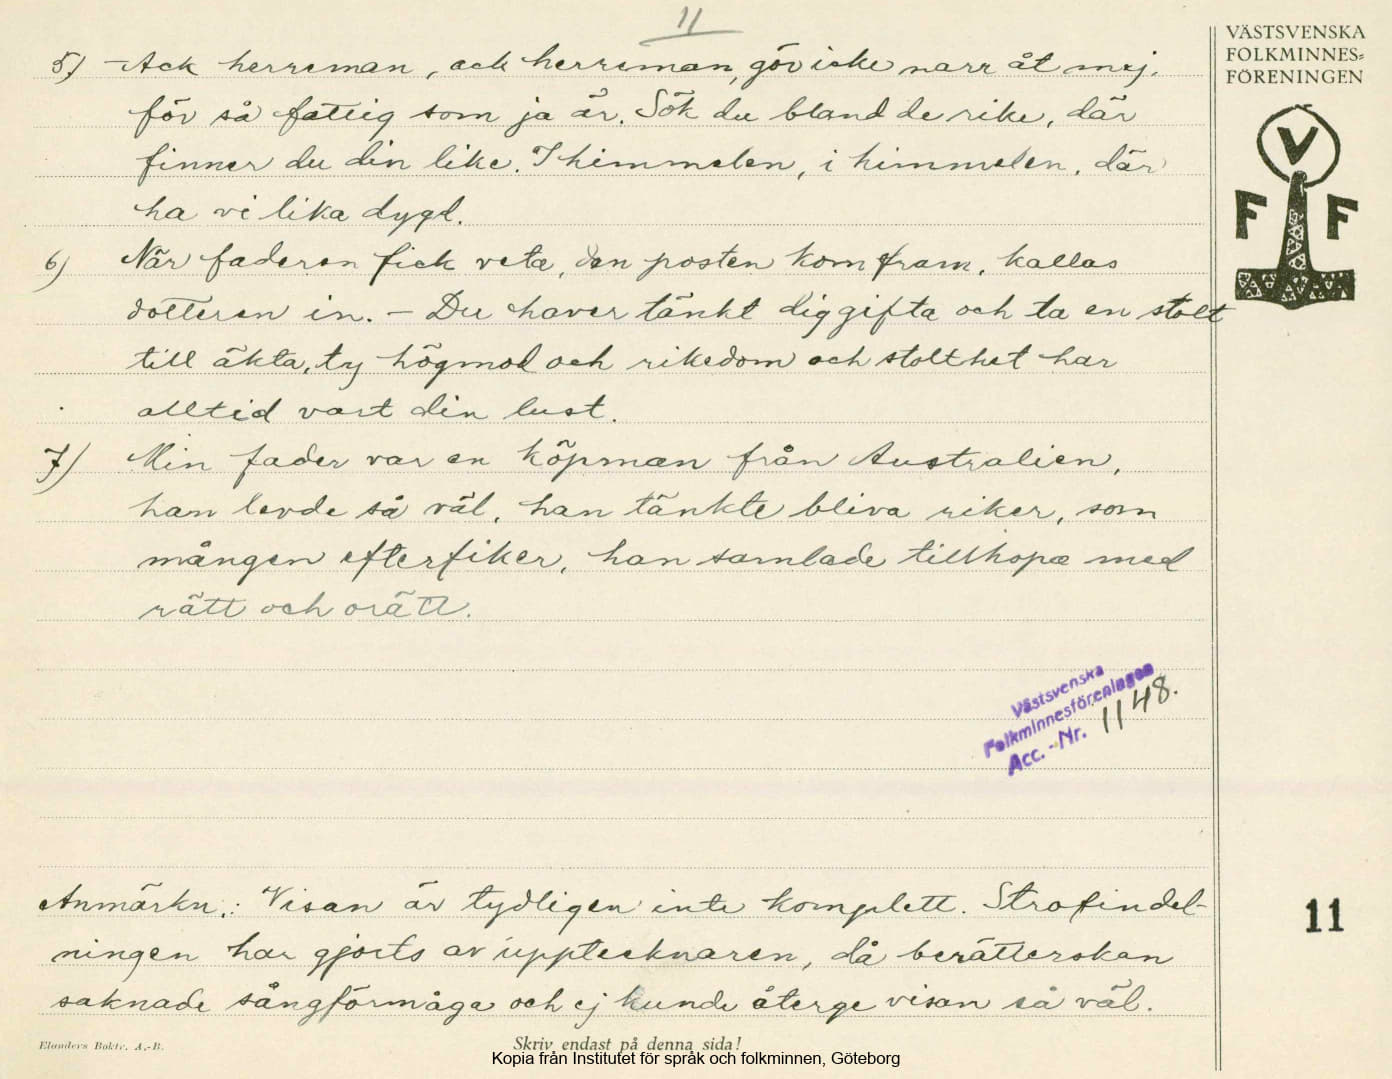 11
5) – Ack herreman, ack herreman, gör icke narr åt mej,
för så fattig som ja är. Sök du bland de rike, där
finner du din like. I himmelen, i himmelen, där
ha vi lika dygd.
6) När faderen fick veta, den posten kom fram, kallas
dotteren in. – Du haver tänkt dig gifta och ta en stolt
till äkta, ty högmod och rikedom och stolthet har
alltid vart din lust.
7) Min fader var en köpman från Australien,
han levde så väl, han tänkte bliva riker, som
mången efterfiker, han samlade tillhopa med
rätt och orätt.
Västsvenska
Folkminnesföreningen
Acc. - Nr. 1148.
Anmärkn.: Visan är tydligen inte komplett. Strofindel-
ningen har gjorts av upptecknaren, då berätterskan
saknade sångförmåga och ej kunde återge visan så väl.
Elanders Boktr. A.-B.
Skriv endast på denna sida!
Kopia från Institutet för språk och folkminnen, Göteborg
VÄSTSVENSKA
FOLKMINNES=
FÖRENINGEN
V
F F
11